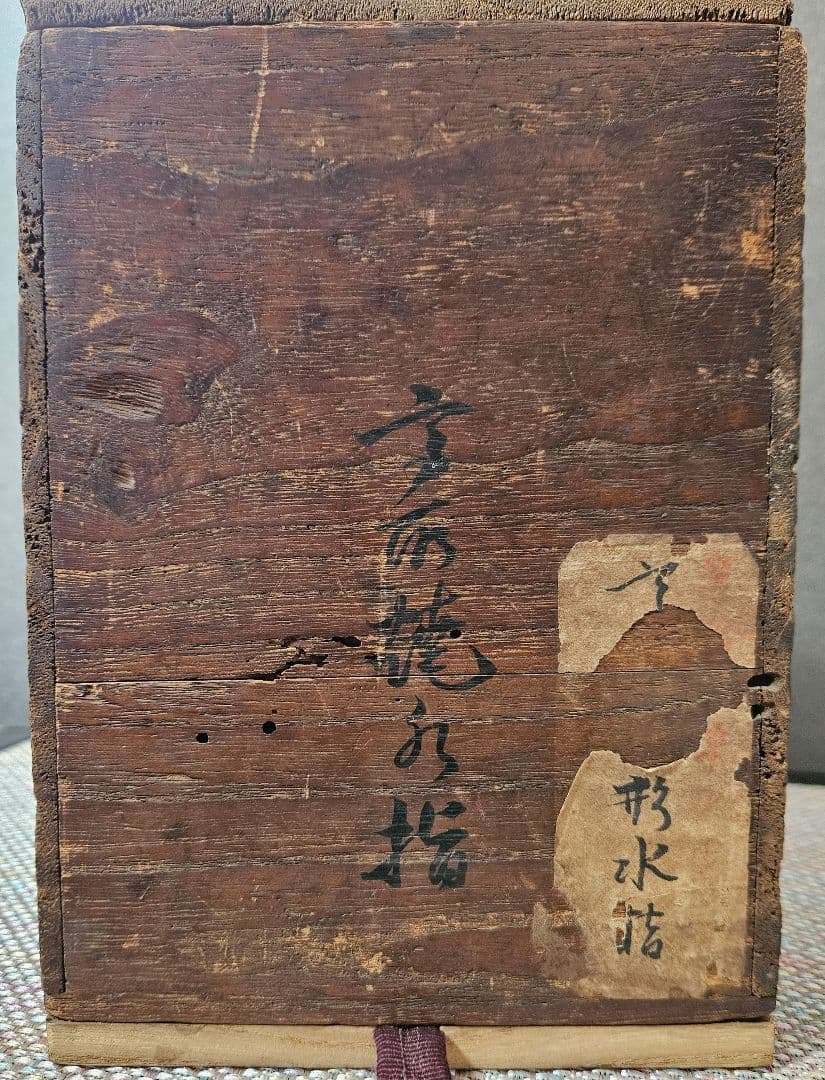 高
形水指
高取焼水指